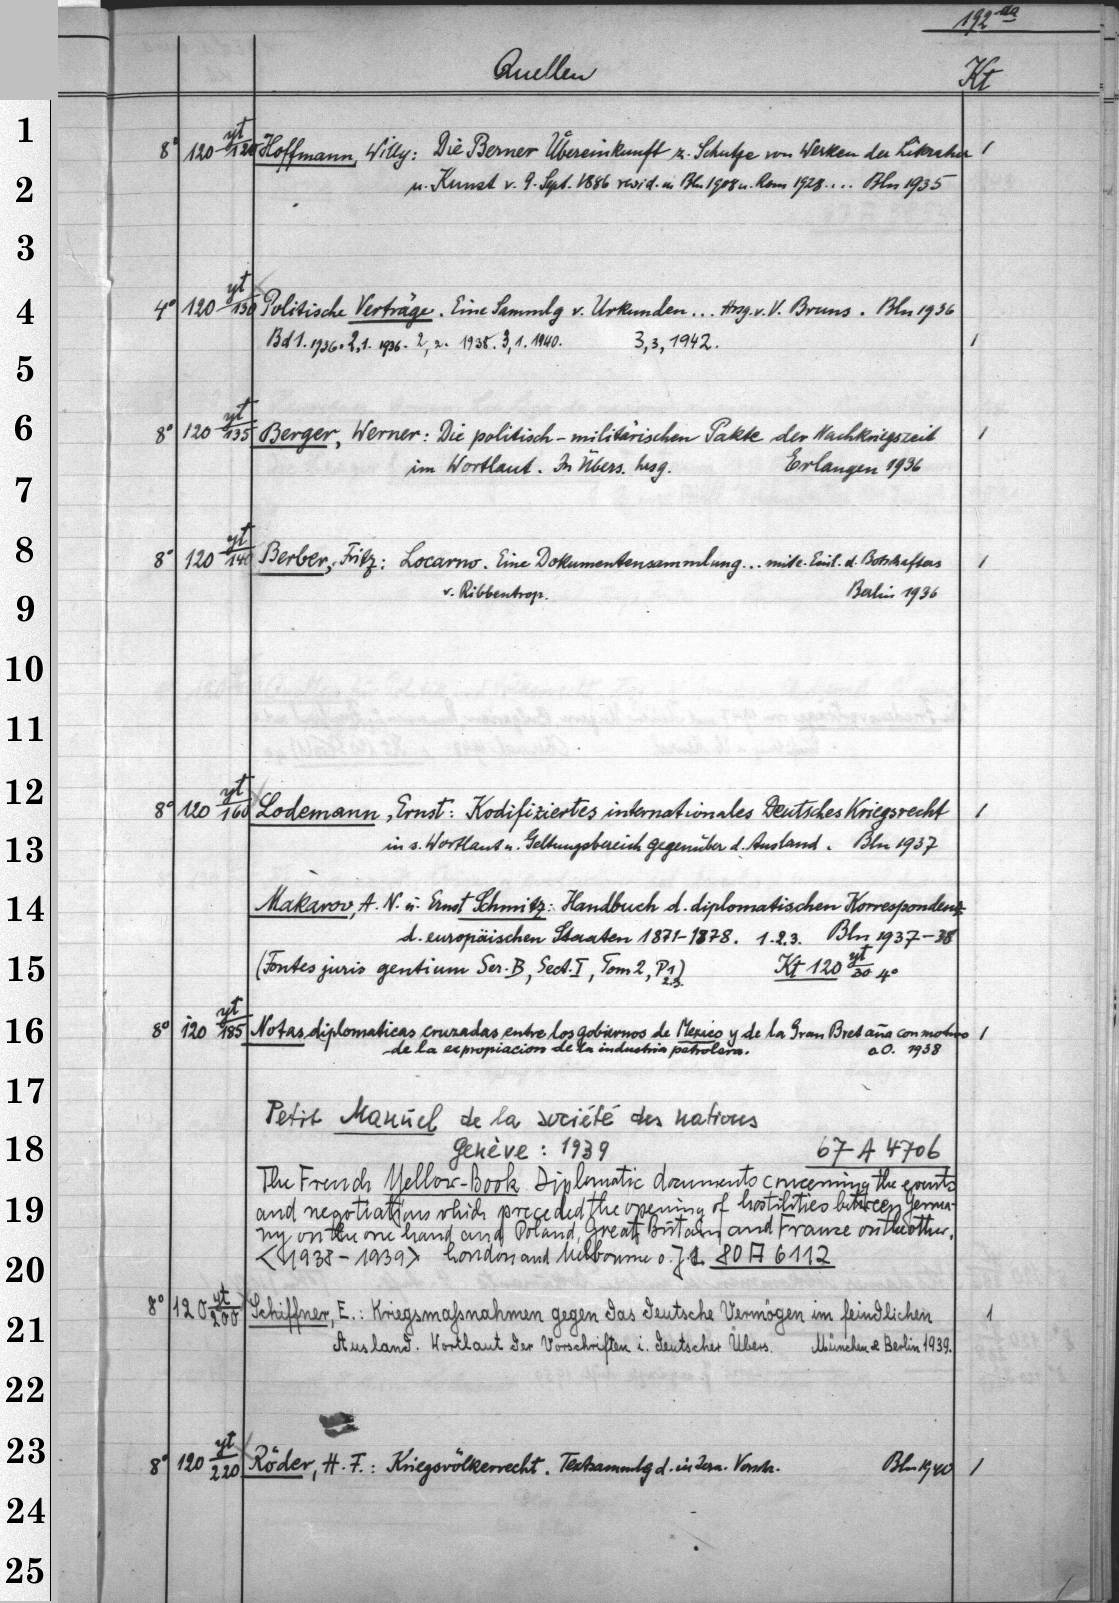 192 aa
Quellen Kt
1
8° 120 yt/120 Hoffmann, Willy: Die Berner Übereinkunft z. Schutze von Werken der Literatur 1
2
u. Kunst v. 9. Sept. 1886 revid. in Bln 1908 u. Rom 1928.... Bln 1935
3
4
4° 120 yt/130 Politische Verträge. Eine Sammlg v. Urkunden... Hrsg. v. V. Bruns. Bln 1936
Bd 1. 1936. 2,1. 1936. 2,2. 1938. 3,1. 1940. 3,3, 1942. 1
5
6
8° 120 yt/135 Berger, Werner: Die politisch-militärischen Pakte der Nachkriegszeit 1
im Wortlaut. In Übers. hrsg. Erlangen 1936
7
8
8° 120 yt/140 Berber, Fritz: Locarno. Eine Dokumentensammlung... mit e. Einl. d. Botschafters 1
v. Ribbentrop. Berlin 1936
9
10
11
12
8° 120 yt/160 Lodemann, Ernst: Kodifiziertes internationales Deutsches Kriegsrecht 1
13
in s. Wortlaut u. Geltungsbereich gegenüber d. Ausland. Bln 1937
14
Makarov, A. N. u. Ernst Schmitz: Handbuch d. diplomatischen Korrespondenz
d. europäischen Staaten 1871-1878. 1.2.3. Bln 1937-38
15
(Fontes juris gentium Ser. B, Sect. I, Tom 2, P 1 2.3.) Kt 120 yt/30 4°
16
8° 120 yt/185 Notas diplomaticas cruzadas entre los gobiernos de Mexico y de la Gran Bretaña con motivo 1
de la expropiacion de la industria petrolera. o.O. 1938
17
Petit Manuel de la société des nations
18
Genève: 1939 67-A 4706
The French Yellow-Book. Diplomatic documents concerning the events
19
and negotiations which preceded the opening of hostilities between Germa-
ny on the one hand and Poland, Great Britain and France on the other.
20
<(1938-1939> London and Melbourne o. J. 80 A 6112
8° 120 yt/200 Schiffner, E.: Kriegsmaßnahmen gegen das deutsche Vermögen im feindlichen 1
21
Ausland. Wortlaut der Vorschriften i. deutscher Übers. München & Berlin 1939.
22
23
8° 120 yt/220 Röder, H. F.: Kriegsvölkerrecht. Textsammlg d. intern. Vorschr. Bln 1940 1
24
25